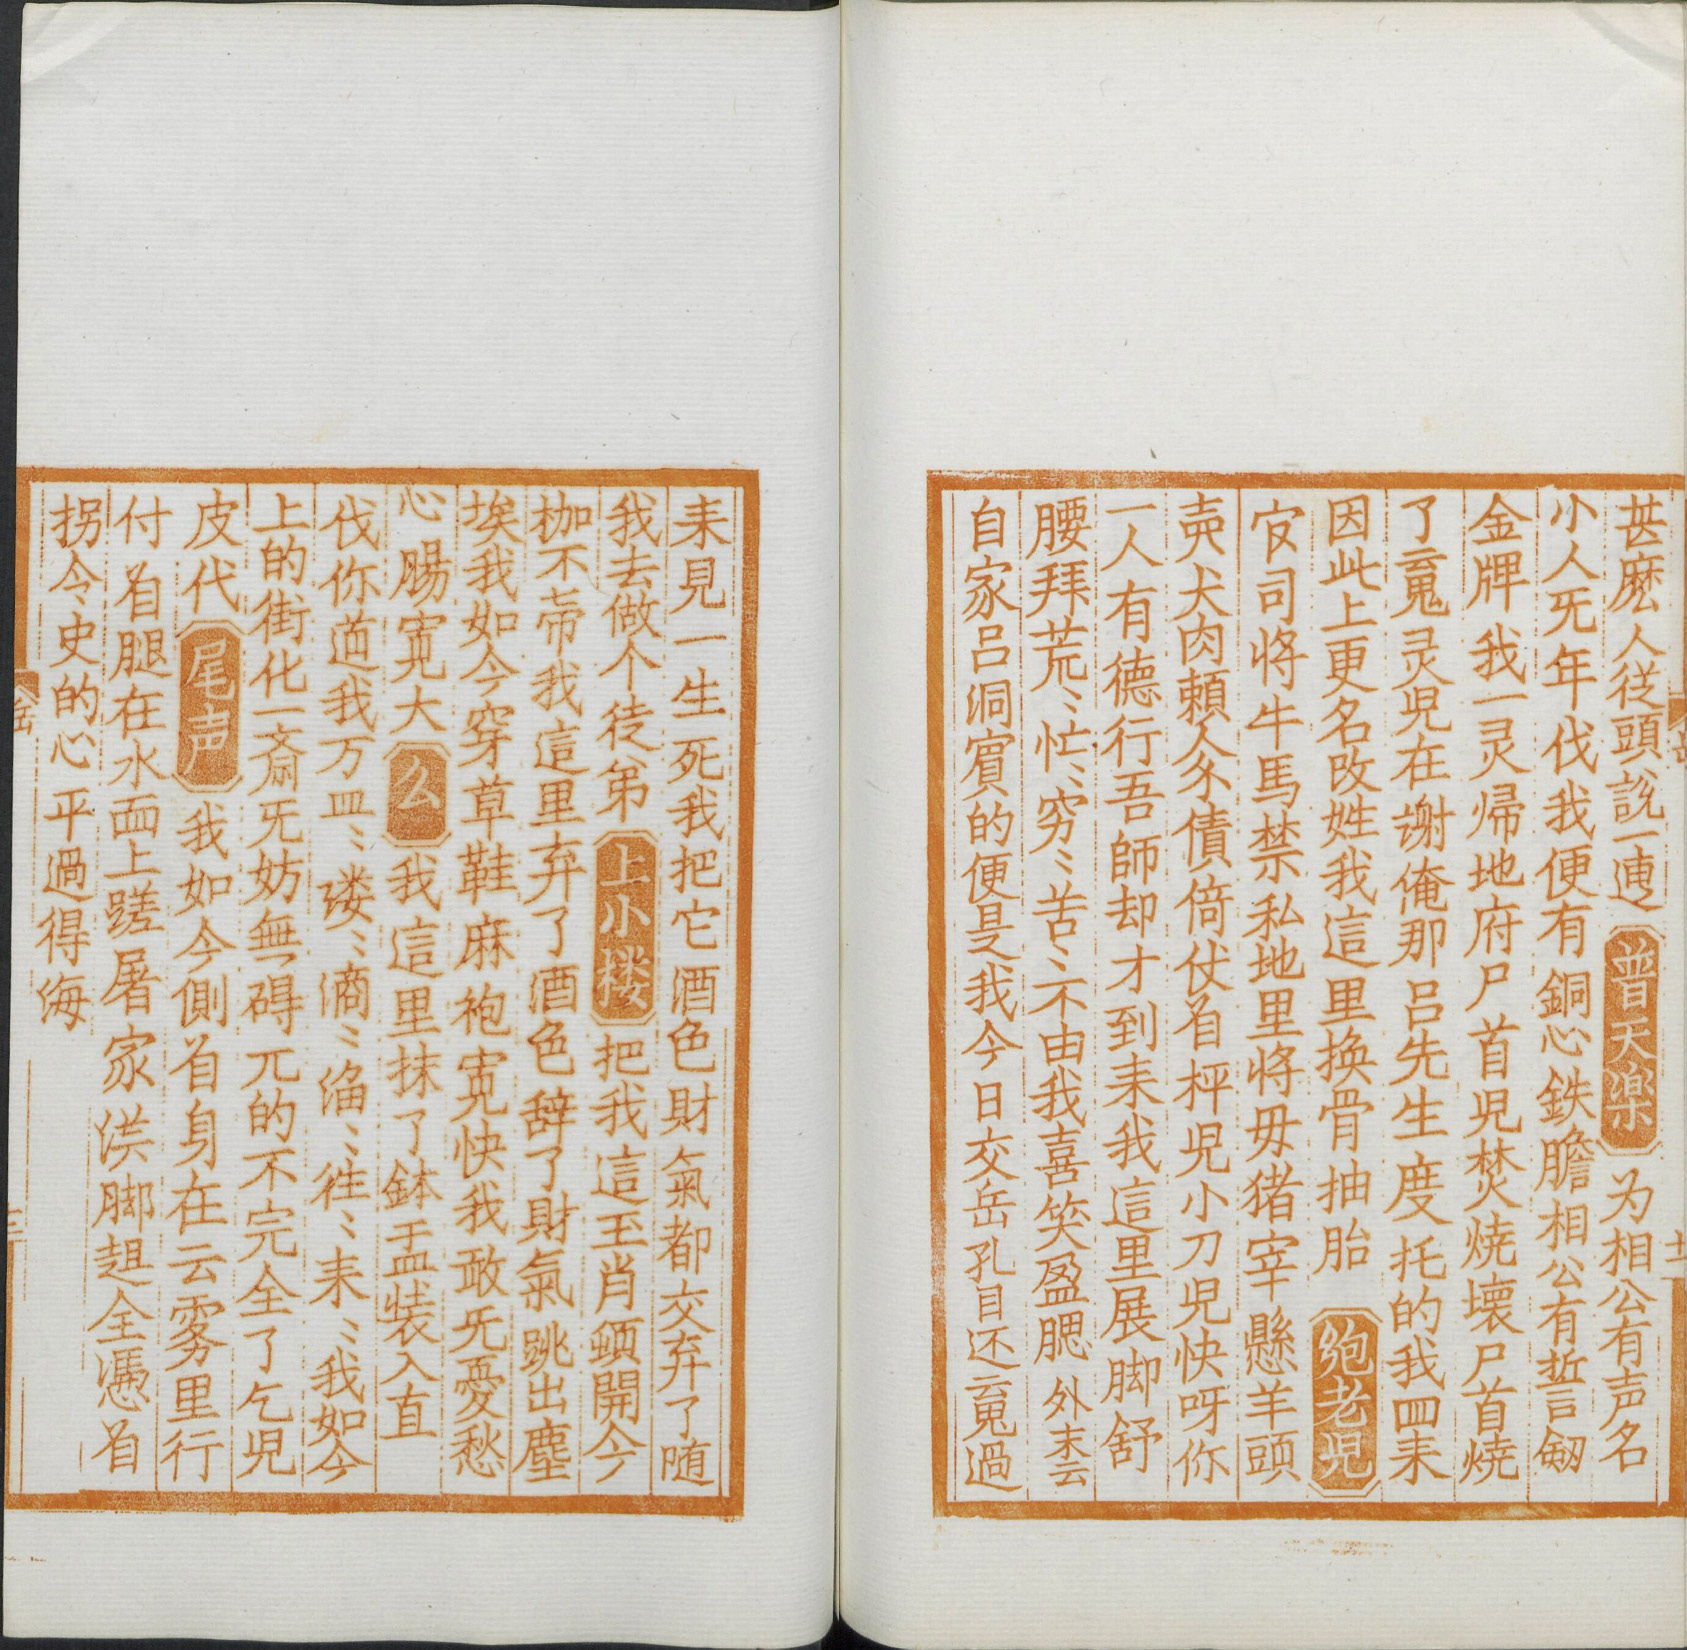 甚麽人従頭説一遍 普天楽 为相公有声名
小人旡年伐我便有銅心鉄膽相公有誓言劔
金牌我一灵帰地府尸首児焚燒壊尸首燒
了䰟灵児在謝俺那呂先生度托的我囬来
因此上更名改姓我這里换骨抽胎 鮑老児
官司将牛馬禁私地里将毋猪宰懸羊頭
賣犬肉頼人债倚仗着枰児小刀児快呀你
一人有德行吾師却才到来我這里展脚舒
腰拜荒〻忙〻穷〻苦〻不由我喜笑盈腮 外末云
自家吕洞賔的便是我今日交岳孔目还䰟過
来見一生死我把它酒色財氣都交弃了随
我去做个徒弟 上小楼 把我這玉肖頓開今
枷不帝我這里弃了酒色辞了財氣跳出塵
埃我如今穿草鞋麻袍寛快我敢旡憂愁
心腸寛大 么 我這里抹了鉢盂装入直
伐你道我万皿〻㳺〻滴〻淄〻徃〻来〻我如今
上的街化一斎旡妨無碍兀的不完全了乞児
皮代 尾声 我如今側着身在云雾里行
付着腿在水面上蹉屠家洪脚趄全憑着
拐令史的心平過得海